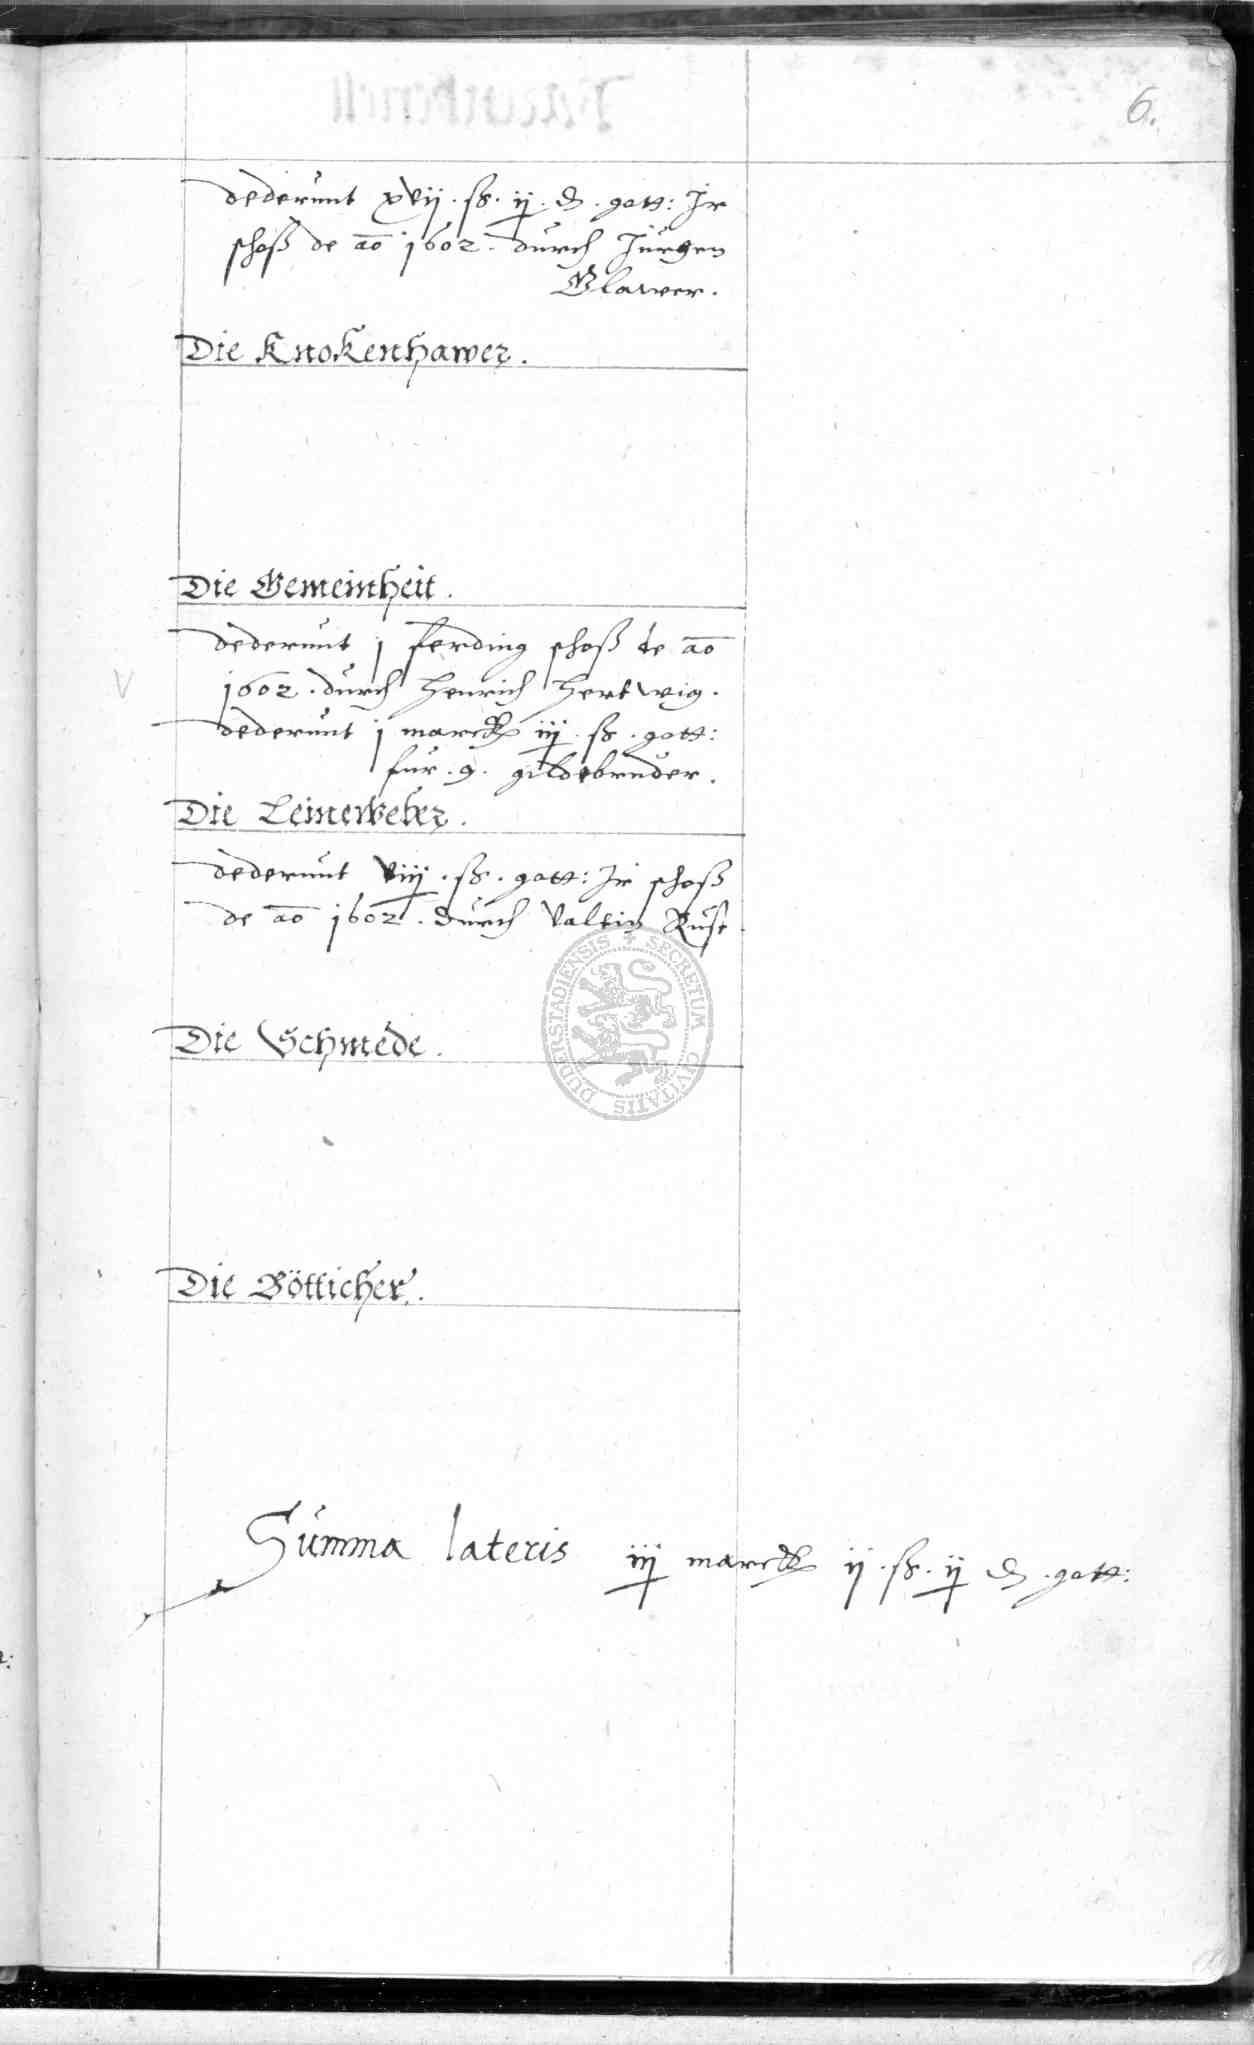 6.
dederunt xvij . ß . ij . ₰ . gott: Jr
schoß de ao 1602 . durch Jürgen
Glawer .
Die Knokenhawer .
Die Gemeinheit .
dederunt j ferding schoß de ao
1602 . durch Henrich Hertwig .
dederunt j marck iij . ß . gott:
fur . 9 . gildebruder .
Die Leineweber .
dederunt viij . ß . gott: Jr schoß
de ao 1602 . durch Valtin Rust
DUDERSTADIENSIS + SECRETUM CIVITATIS
Die Schmede .
Die Bötticher .
Summa lateris iij marck ij . ß . ij ₰ . gott: